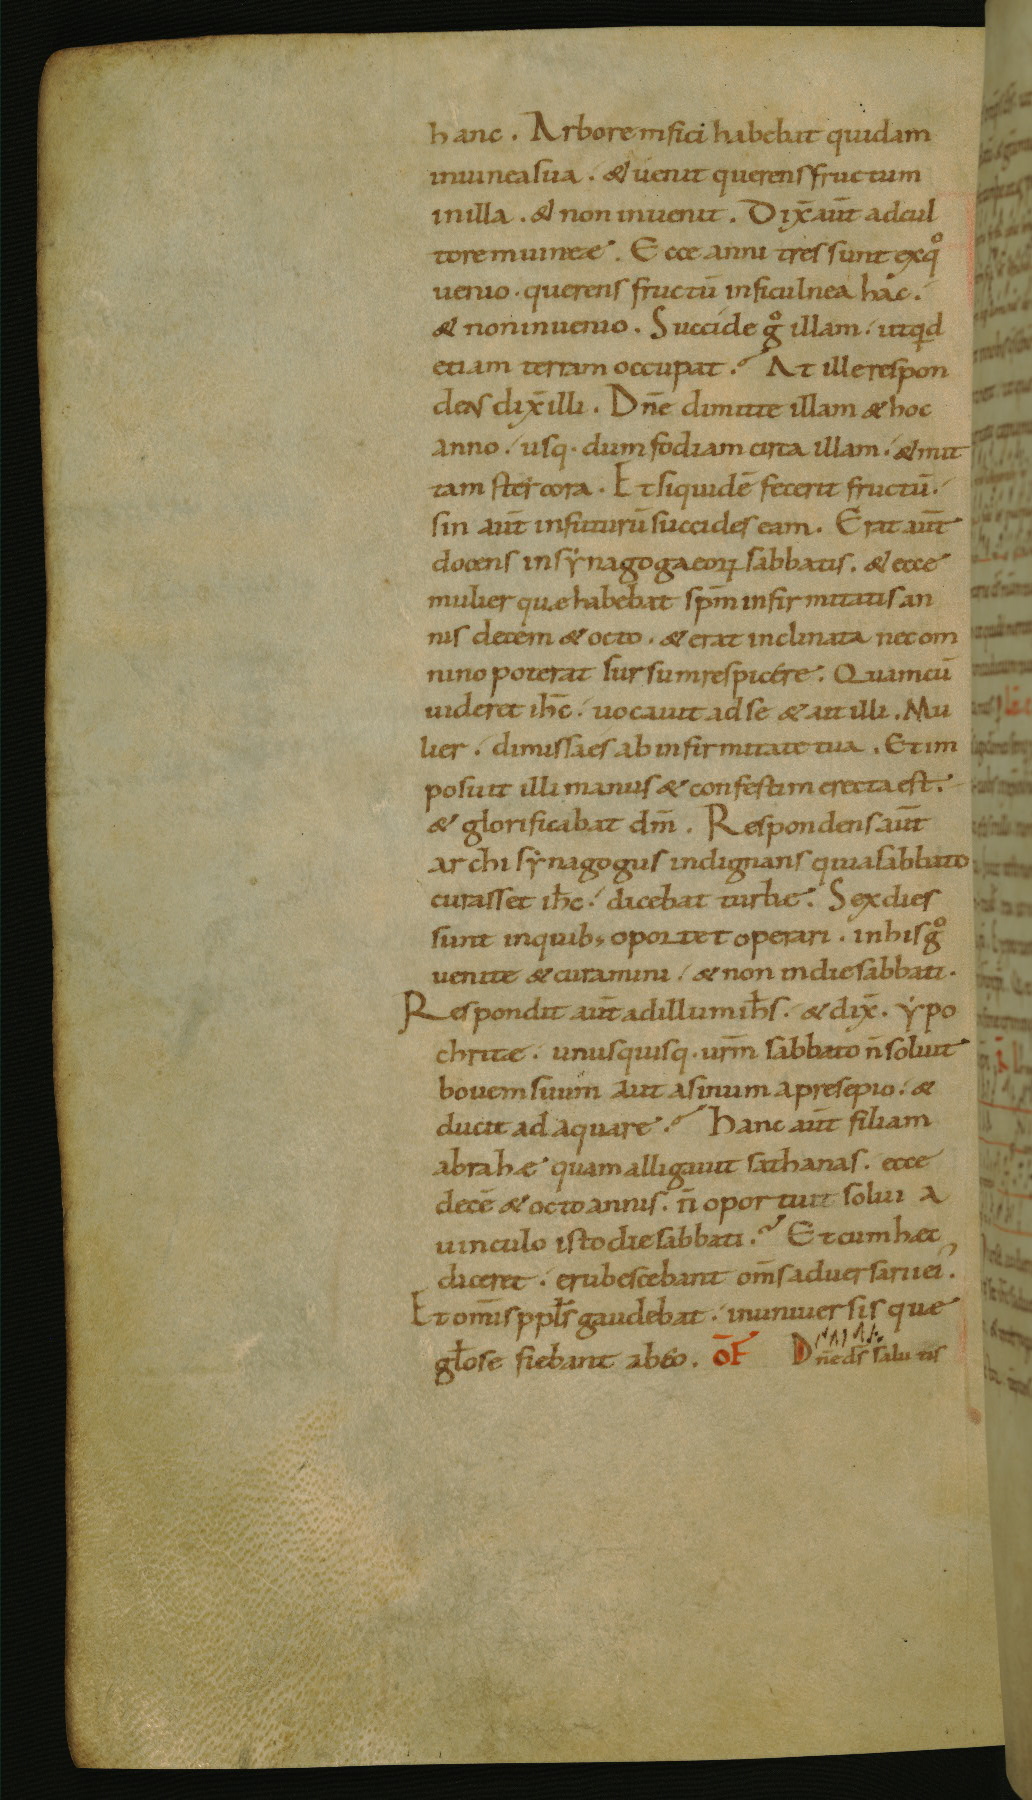 hanc. Arborem fici habebat quidam
in uinea sua. & uenit querens fructum
in illa. & non inuenit. Dix̄ aūt ad cul
torem uineæ. Ecce anni tres sunt ex qͦ
uenio. querens fructū in ficulnea hāc.
& non inuenio. Succide gͦ illam. ut qid
etiam terram occupat. At ille respon
dens dix̄ illi. Dn̄e dimitte illam & hoc
anno. usq. dum fodiam circa illam. & mit
tam stercora. Et siquidē fecerit fructū.
sin aūt in futurū succides eam. Erat aūt
docens in sẏnagoga eoꝝ sabbatis. & ecce
mulier quæ habebat spm̄ infirmitatis an
nis decem & octo. & erat inclinata nec om
nino poterat sursum respicere. Quam cū
uideret ihc̄. uocauit ad se & ait illi. Mu
lier. dimissa es ab infirmitate tua. Et im
posuit illi manus & confestim erecta est.
& glorificabat dm̄. Respondens aūt
archisẏnagogus indignans quia sabbato
curasset ihc̄. dicebat turbæ. Sex dies
sunt in quib; oportet operari. in his gͦ
uenite & curamini. & non in die sabbati.
Respondit aūt ad illum ihs̄. & dix̄. ẏpo
chritæ. unusquisq. urm̄ sabbato n̄ soluit
bouem suum aut asinum a presepio. &
ducit ad aquare. Hanc aūt filiam
abrahæ quam alligauit sathanas. ecce
decē & octo annis. n̄ oportuit solui a
uinculo isto die sabbati. Et cum hæc
diceret. erubescebant om̄s aduersarii ei.
Et om̄is ppls̄ gaudebat. in uniuersis que
głose fiebant ab eo. OF Dn̄e ds̄ salutis